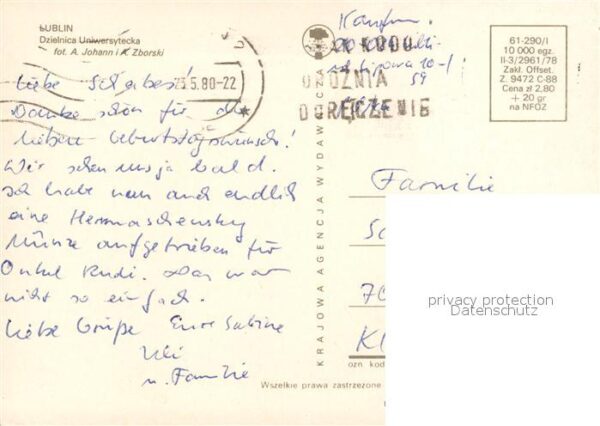 LUBLIN
Dzielnica Uniwersytecka
fot. A. Johann i K. Zborski
5.80-22
KODU
OPÓŹNIA
DORĘCZENIE
61-290/I
10 000 egz.
II-3/2961/78
Zakł. Offset.
Z. 9472 C-88
Cena zł 2,80
+ 20 gr
na NFOZ
Liebe
Danke schön für die
lieben Geburtstagswünsche!
Wir sehen uns ja bald.
Ich habe nun auch endlich
eine
Münze aufgetrieben für
Onkel Rudi. Das war
nicht so einfach.
Liebe Grüße Eure Sabine
Uli
u. Familie
KRAJOWA AGENCJA WYDAWNICZA
Familie
70
ozn. kod
Wszelkie prawa zastrzeżone
privacy protection
Datenschutz